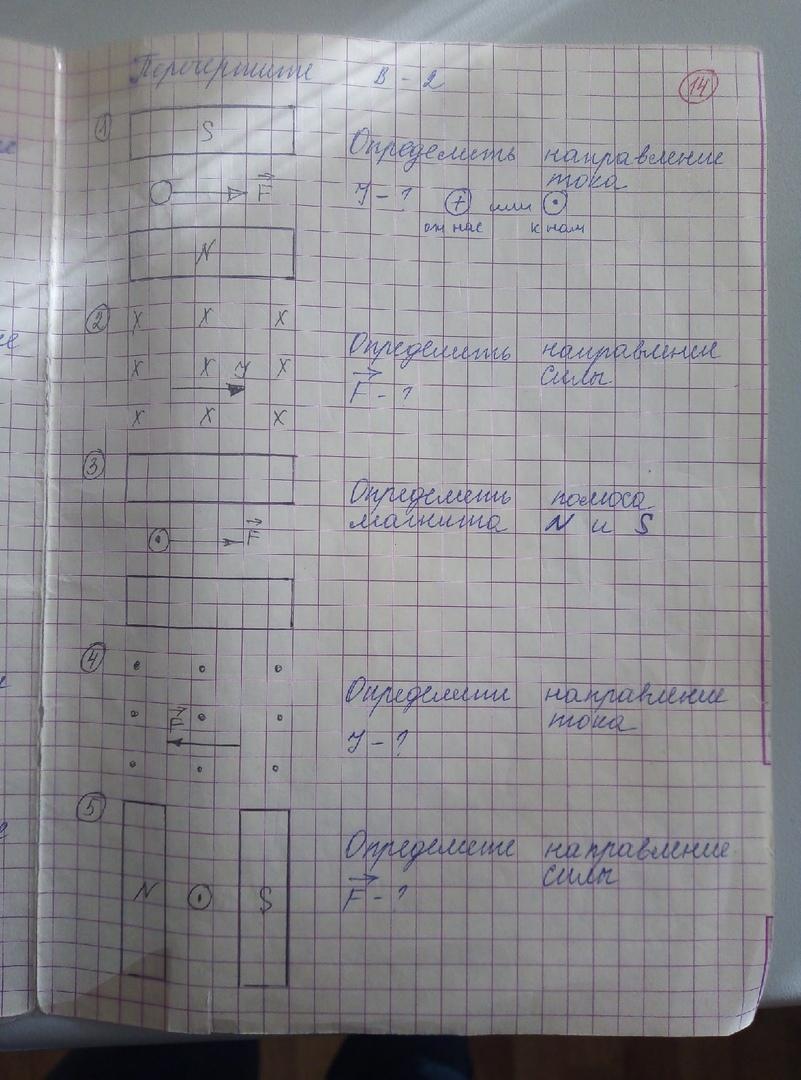 Перечертите В - 2
14
1
S
F
N
Определить направление
тока
I - ?
+ или •
от нас к нам
2
X X X
X X I X
X X X
Определить направление
силы
F - ?
3
F
Определить полюса
магнита N и S
4
F
Определити направление
тока
I - ?
5
N S
Определите направление
силы
F - ?